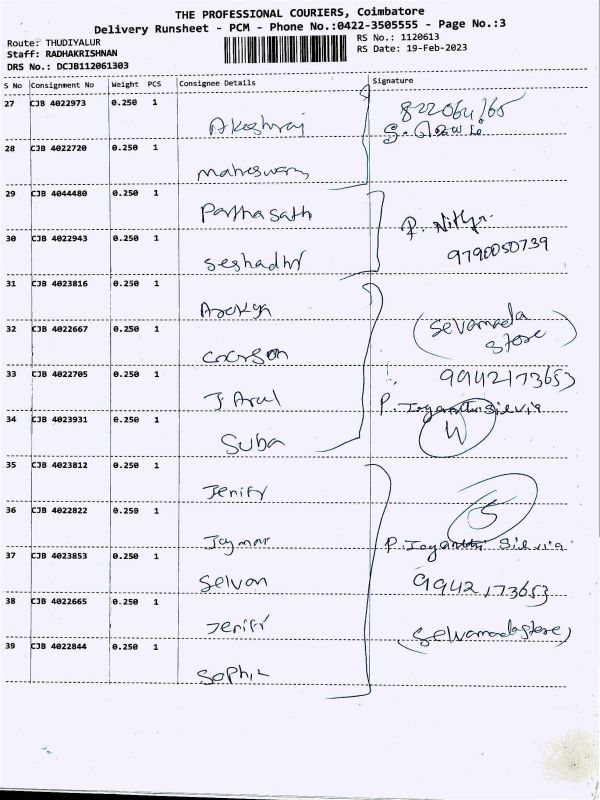 THE PROFESSIONAL COURIERS, Coimbatore
Delivery Runsheet - PCM - Phone No.:0422-3505555 - Page No.:3
Route: THUDIYALUR
RS No.: 1120613
Staff: RADHAKRISHNAN
RS Date: 19-Feb-2023
DRS No.: DCJB112061303
S No Consignment No Weight PCS Consignee Details Signature
27 CJB 4022973 0.250 1
28 CJB 4022720 0.250 1
maheswary
29 CJB 4044480 0.250 1
Parthasath
30 CJB 4022943 0.250 1 P. Nithya
seshadhri 9790050739
31 CJB 4023816 0.250 1
Arokya
32 CJB 4022667 0.250 1 (Sevamada store)
33 CJB 4022705 0.250 1 9942173653
J Arul P. Joyanthi Silevia
34 CJB 4023931 0.250 1
Suba
35 CJB 4023812 0.250 1
Jenify
36 CJB 4022822 0.250 1 5
Jaymar P. Joyanthi Silevia
37 CJB 4023853 0.250 1
Selvan 9942173653
38 CJB 4022665 0.250 1
Jenify (Selvamadastore)
39 CJB 4022844 0.250 1
Sophi